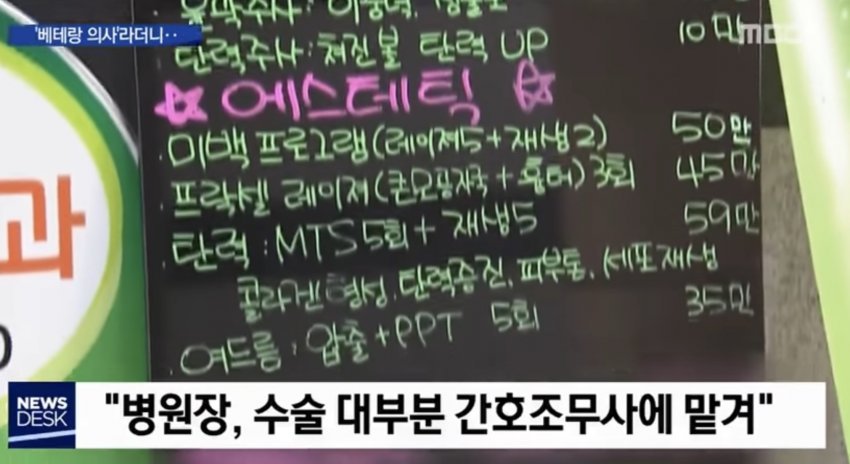 '베테랑 의사'라더니··
MBC
윤곽주사: 이중턱,
탄력주사: 처진볼 탄력 UP 10만
☆ 에스테틱 ☆
미백 프로그램(레이저5+재생2) 50만
프락셀 레이저(큰모공자국+흉터)3회 45만
탄력: MTS5회+재생5 59만
콜라겐형성, 탄력증진, 피부톤, 세포재생
여드름: 압출+PPT 5회 35만
과
NEWS DESK
"병원장, 수술 대부분 간호조무사에 맡겨"